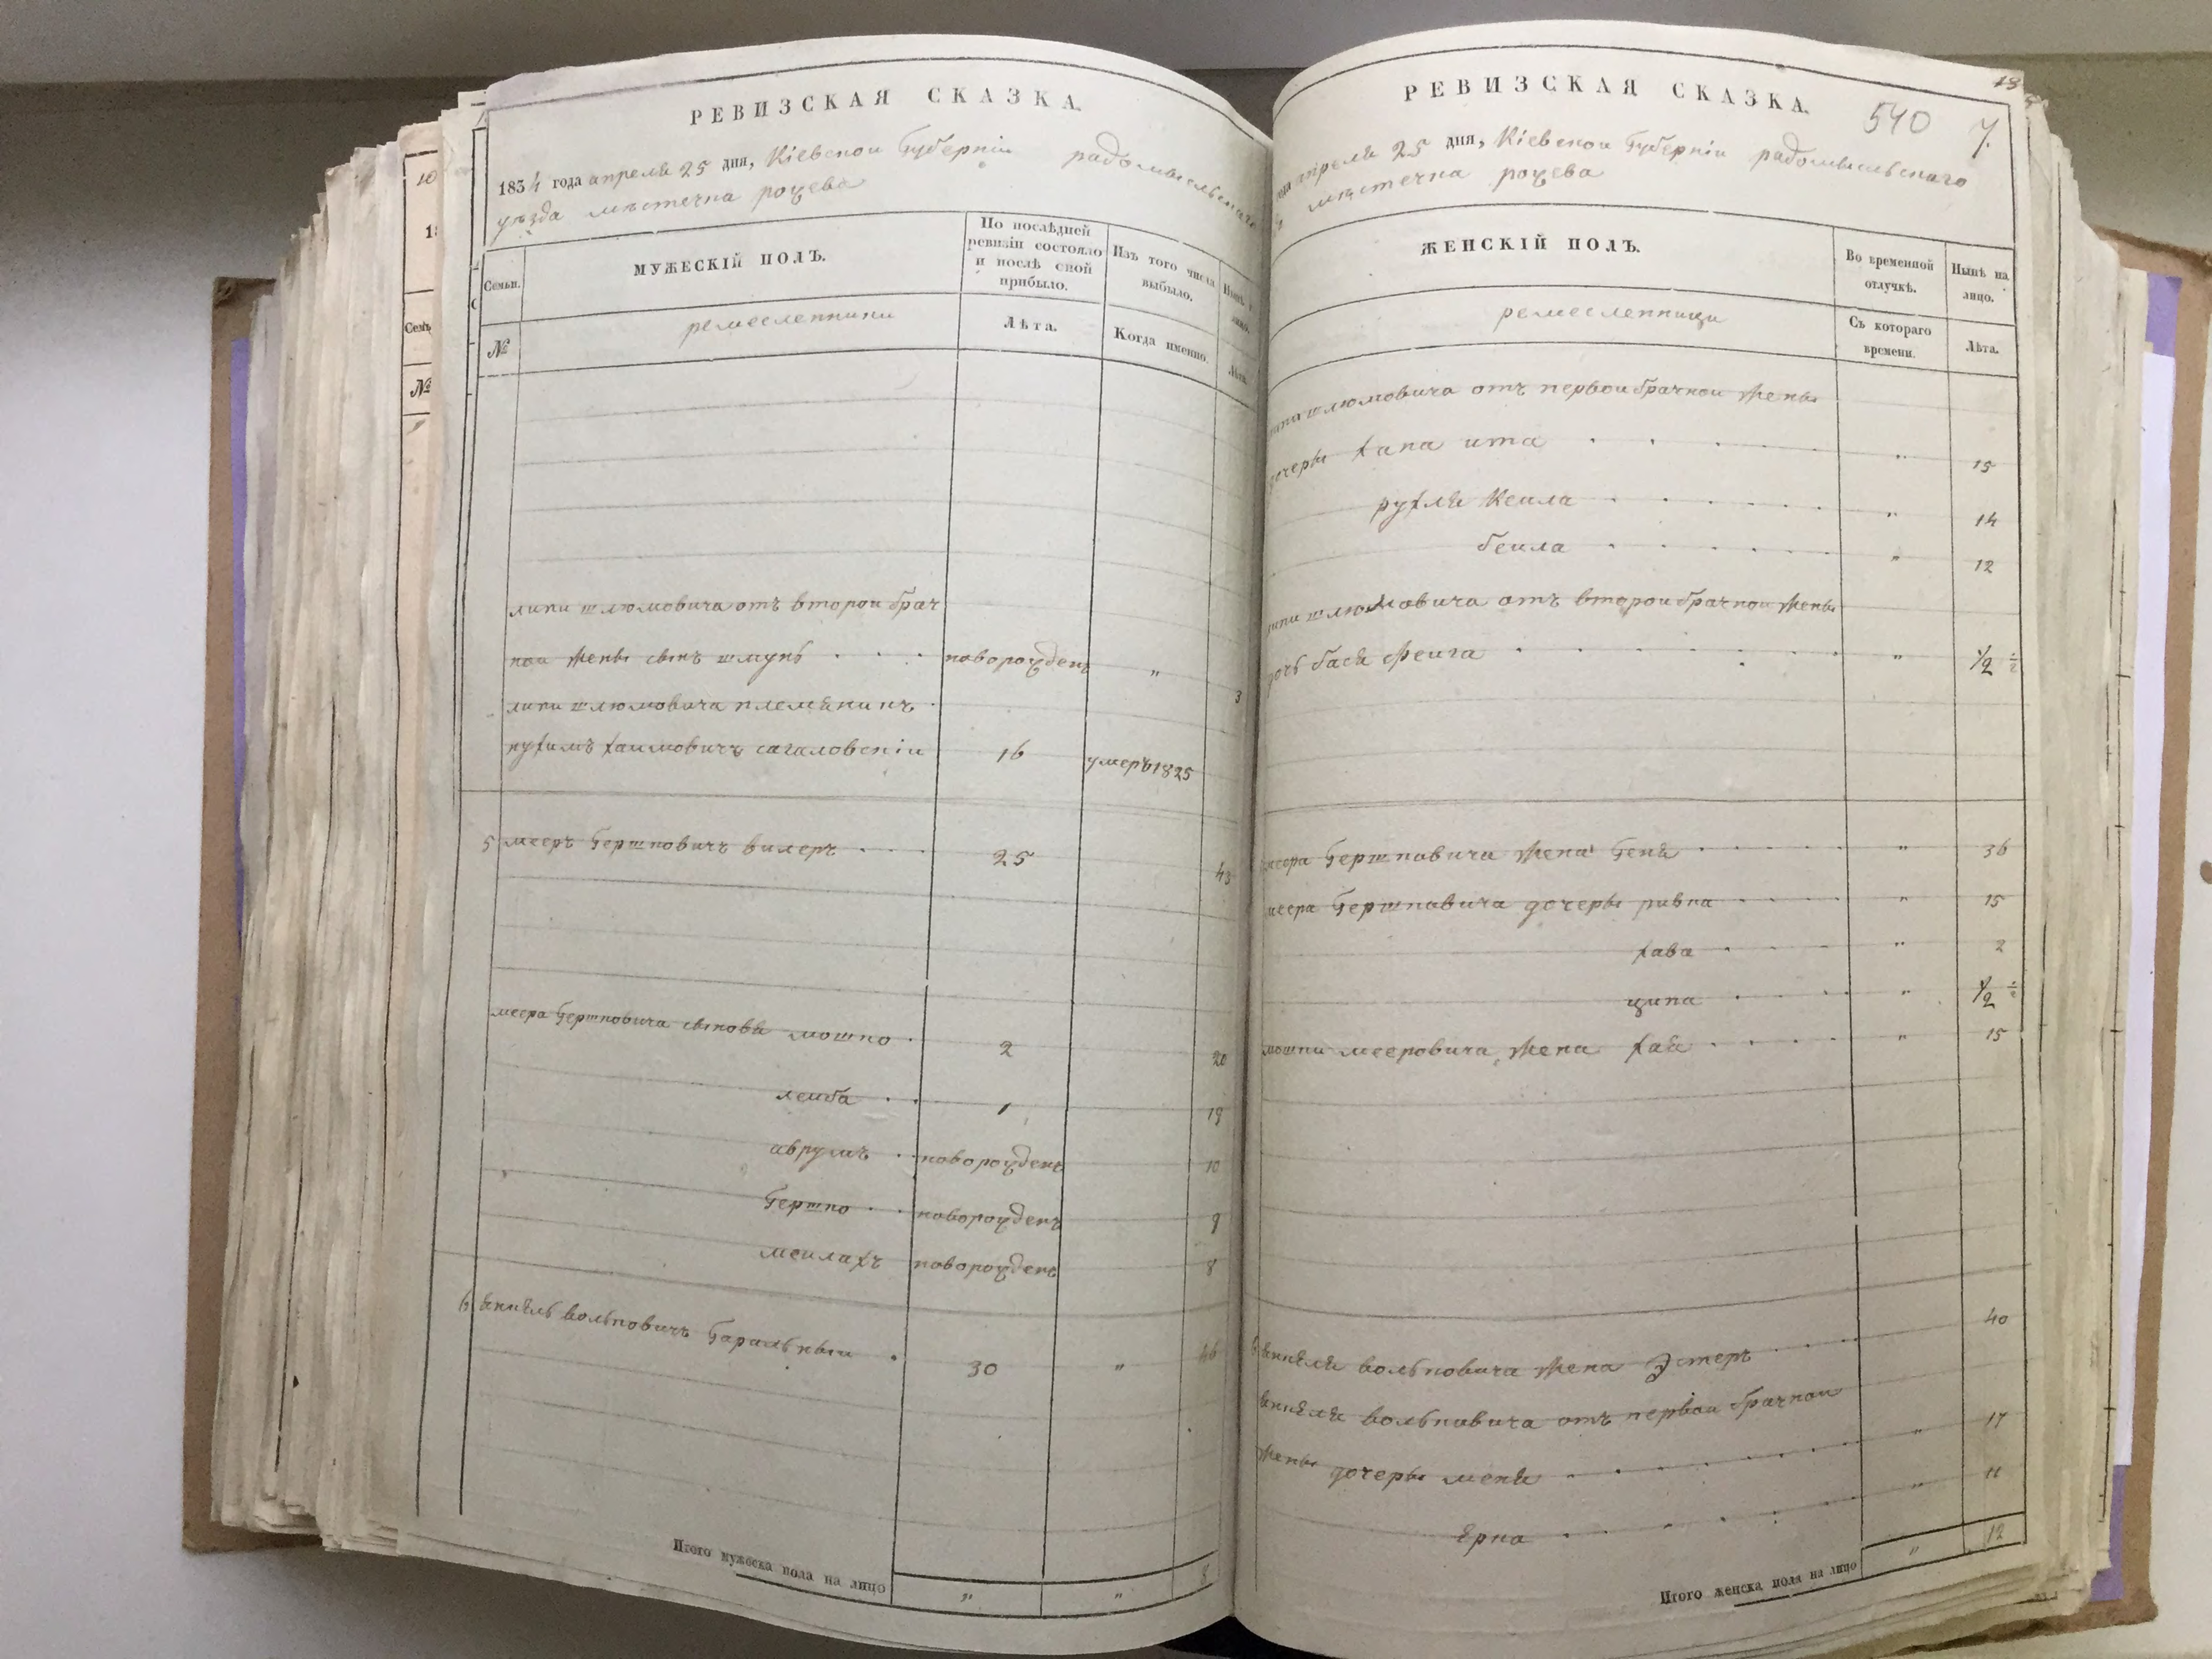 РЕВИЗСКАЯ СКАЗКА.
1834 года апреля 25 дня, Кіевской Губерніи радомысльскаго
уезда местечка рожева
Семьи.
МУЖЕСКІЙ ПОЛЪ.
По послѣдней ревизіи состояло и послѣ оной прибыло.
Изъ того числа выбыло.
Нынѣ на лицо.
№
ремесленники
Лѣта.
Когда именно.
Лѣта.
липи шлюмовича отъ второй брач
ной жены сынъ шмуль новорожденъ " 3
липи шлюмовича племяникъ
нухимъ хаимовичъ сагаловскій 16 умеръ 1825
5 мееръ Гершковичъ вилеръ 25 43
меера Гершковича сыновья мошко 2 20
лейба 1 19
аврумъ новорожденъ 10
Гершко новорожденъ 9
мейлахъ новорожденъ 8
6 янкель волковичъ 30 " 46
Итого мужеска пола на лицо " " 8
РЕВИЗСКАЯ СКАЗКА.
540 7.
года апреля 25 дня, Кіевской Губерніи радомысльскаго
местечка рожева
ЖЕНСКІЙ ПОЛЪ.
Во временной отлучкѣ.
Нынѣ на лицо.
ремесленници
Съ котораго времени.
Лѣта.
шлюмовича отъ первой брачной жены
дочери хана ита " 15
рухля Кейла " 14
бейла " 12
липи шлюмовича отъ второй брачной жены
дочь бася фейга " 1/2
меера Гершковича жена Геня " 36
меера Гершковича дочери ривка " 15
хава " 2
ципа " 1/2
мошки мееровича жена хая " 15
6 янкеля вольковича жена Эстеръ 40
янкеля вольковича отъ первой брачной
жены дочери меня " 17
" 11
Итого женска пола на лицо " 12